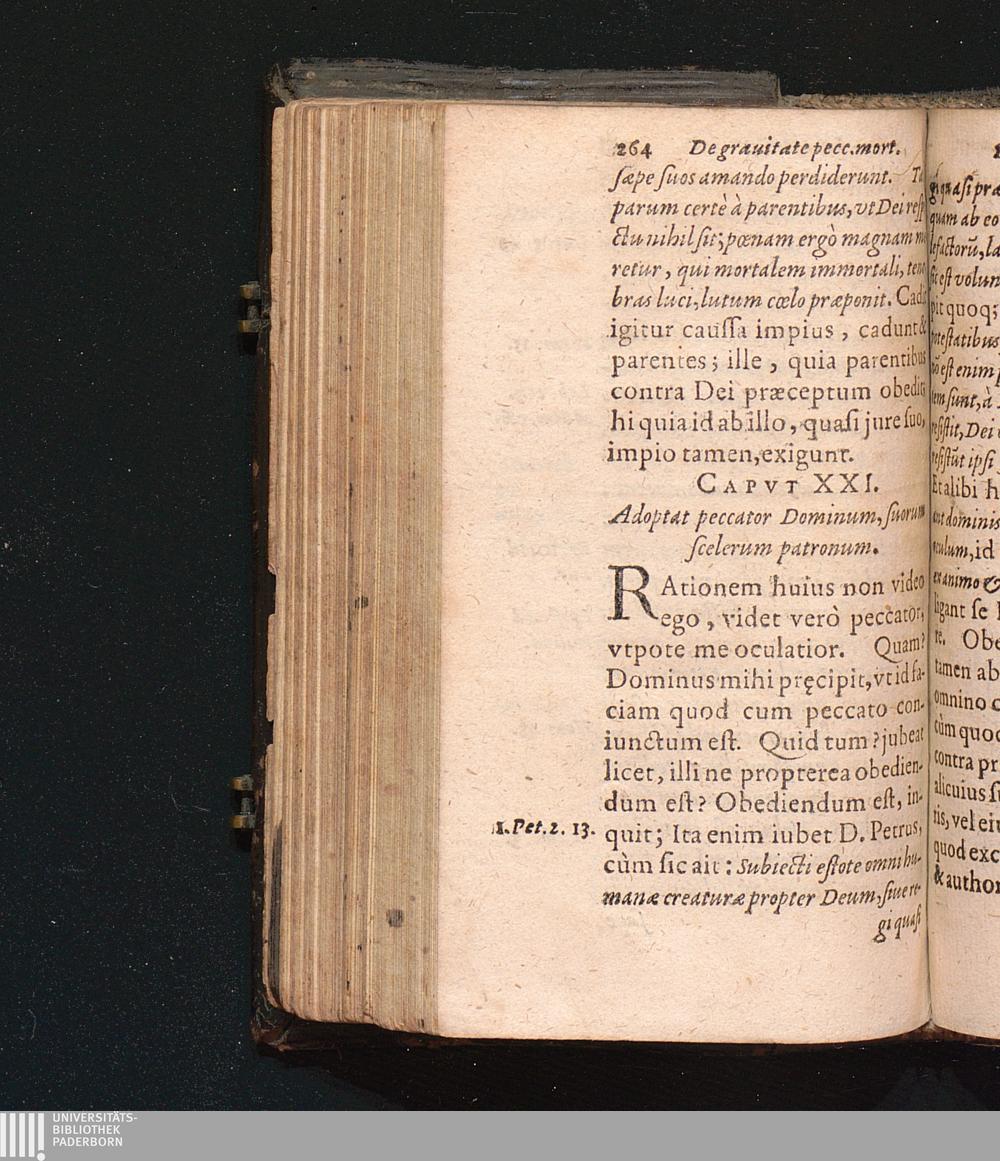 264 De grauitate pecc. mort.
sæpe suos amando perdiderunt.
parum certè à parentibus, vt Dei resp
ctu nihil sit; pœnam ergò magnam
retur, qui mortalem immortali, tene
bras luci, lutum cœlo præponit. Cadit
igitur caussa impius, cadunt &
parentes; ille, quia parentibus
contra Dei præceptum obedit;
hi quia id ab illo, quasi jure suo,
impio tamen, exigunt.
CAPVT XXI.
Adoptat peccator Dominum, suorum
scelerum patronum.
RAtionem huius non video
ego, videt verò peccator,
vtpote me oculatior. Quam?
Dominus mihi pręcipit, vt id fa-
ciam quod cum peccato con-
iunctum est. Quid tum? jubeat
licet, illi ne propterea obedien-
dum est? Obediendum est, in-
1. Pet. 2. 13. quit; Ita enim iubet D. Petrus,
cùm sic ait: Subiecti estote omni hu-
manæ creaturæ propter Deum, siue re-
gi quasi
gi quasi præ
quam ab eo
lefactorū, la
sic est volun
pit quoq;
potestatibus
est enim
sunt, à
resistit, Dei
resistūt ipsi
Et alibi h
dominis
oculum, id
ex animo &
ligant se
re. Obe
tamen ab
omnino c
cùm quod
contra pr
alicuius su
ris, vel eiu
quod exc
& author
UNIVERSITÄTS-
BIBLIOTHEK
PADERBORN